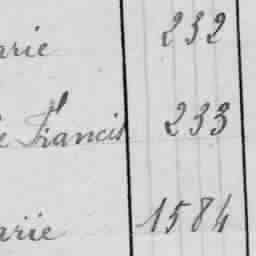 arie 232
e Francis 233
arie 1584